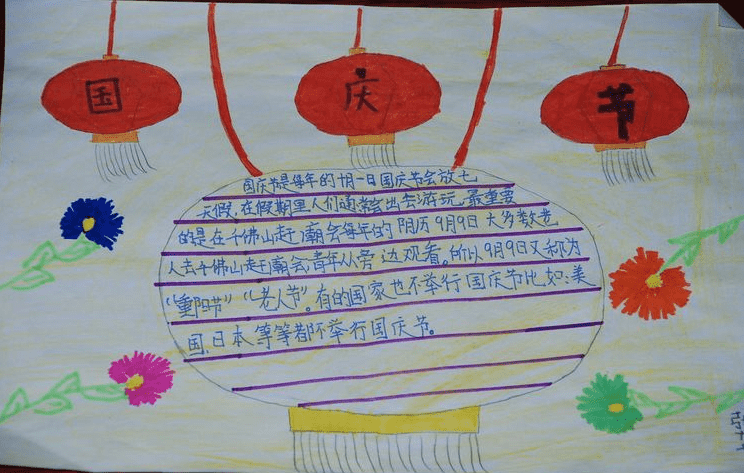 国 庆 节
国庆节是每年的十月一日国庆节会放七
天假,在假期里人们通常会出去游玩,最重要
的是在千佛山赶庙会每年的阴历9月9日大多数老
人去千佛山赶庙会,青年从旁边观看。所以9月9日又称为
“重阳节”“老人节”。有的国家也不举行国庆节比如:美
国、日本等等都不举行国庆节。